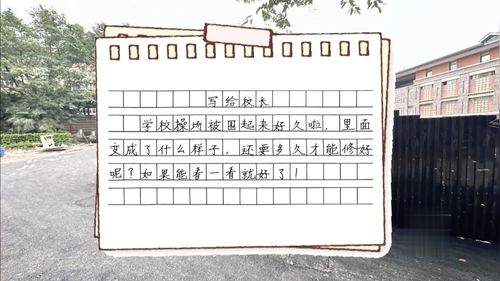 写给校长
学校操场被围起来好久啦，里面
变成了什么样子，还要多久才能修好
呢？如果能看一看就好了！